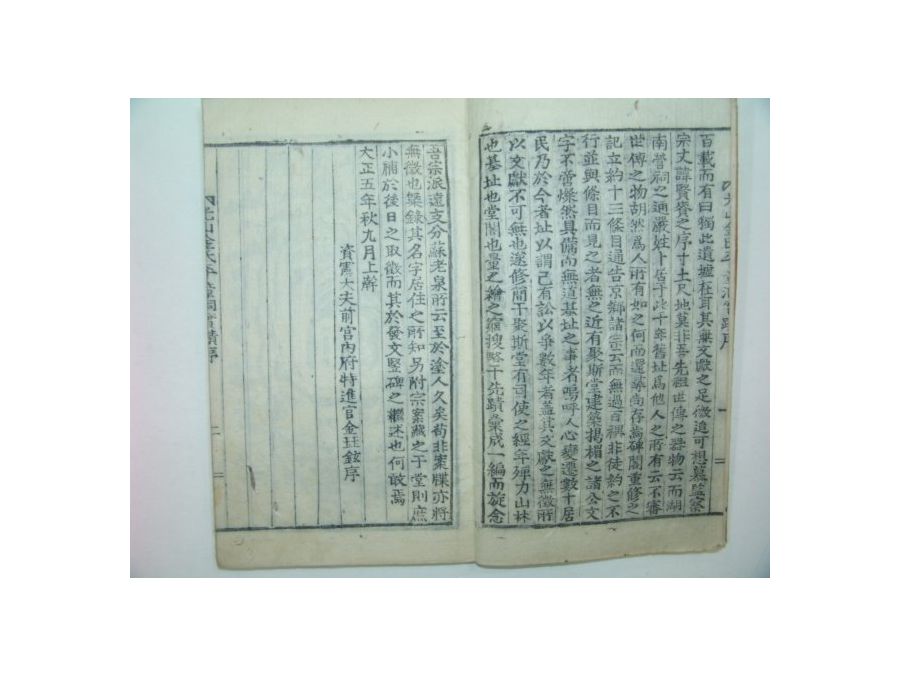 百載而有曰獨此遺墟在耳其無文獻之足徵追可想慕監察
宗丈諱賢賚之序寸土尺地莫非吾先祖世傳之器物云而湖
南
世傳之物胡然爲人所有如之何尚遲華尚存焉碑閣重修之
記立約十三條目通告京鄉諸宗云而無過自襮非徒約之不
行並與條目而見之者無之近有聚斯堂建築揭楣之諸公文
字不啻燦然具備尚無道基址之事者嗚呼人心變遷數十居
民乃於今者址以謂己有訟以爭數年者蓋其文獻之無徵所
以文獻不可無也遂修簡干聚斯堂有司使之經年殫力山林
也墓址也堂閣也量之繪之窮搜略干先蹟彙成一編而旋念
吾宗派遠支分蘇老泉所云至於塗人久矣苟非案牒亦將
無徵也集錄其名字居住之所知另附宗案藏之于堂則庶
小補於後日之取徵而其於發文竪碑之繼述也何敢焉
大正五年秋九月上澣
資憲大夫前宮內府特進官金珏鉉序